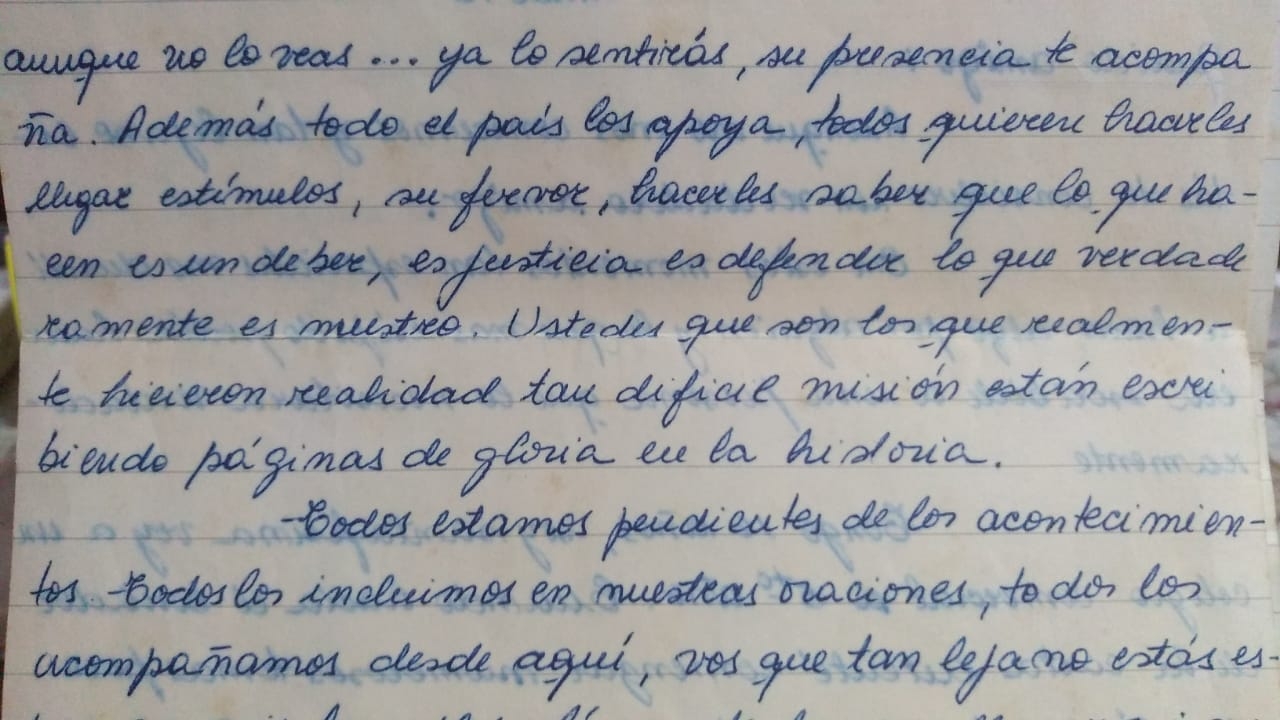 aunque no lo veas... ya lo sentirás, su presencia te acompa
ña. Además todo el país los apoya, todos quieren hacerles
llegar estímulos, su fervor, hacerles saber que lo que ha-
cen es un deber, es justicia es defender lo que verdade
ramente es nuestro. Ustedes que son los que realmen-
te hicieron realidad tan dificil misión están escri
biendo páginas de gloria en la historia.
Todos estamos pendientes de los acontecimien-
tos. Todos los incluimos en nuestras oraciones, todos los
acompañamos desde aquí, vos que tan lejano estás es-